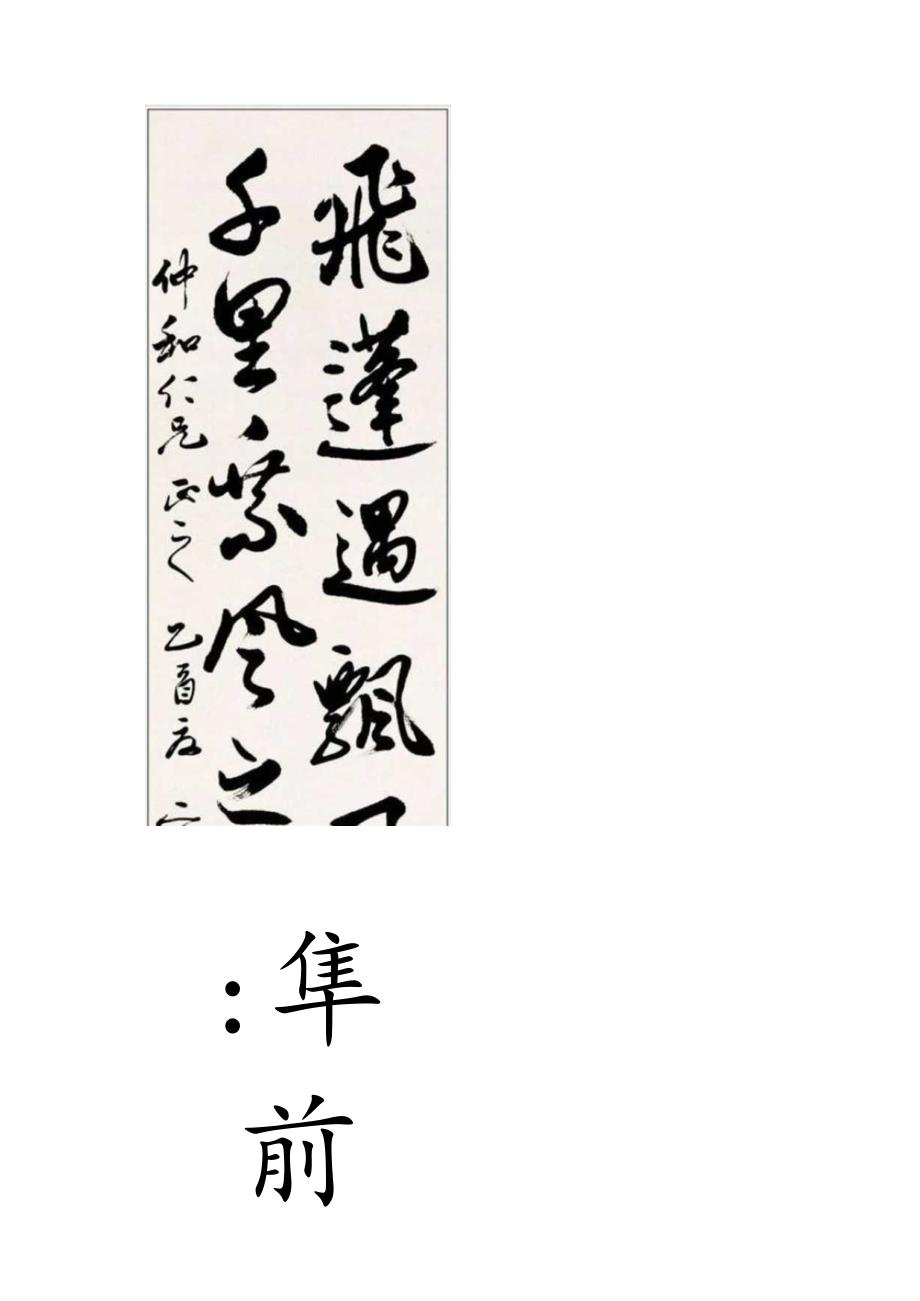 飛蓬遇飄
千里乘風之
仲和仁兄 正之 乙酉夏
:隼
前